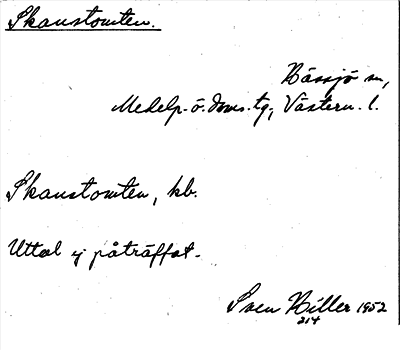 Skanstomten.
Hässjö sn,
Medelp. ö. doms. tg, Västern. l.
Skanstomten, kb.
Uttal ej påträffat.
Sven Hiller 1952
214